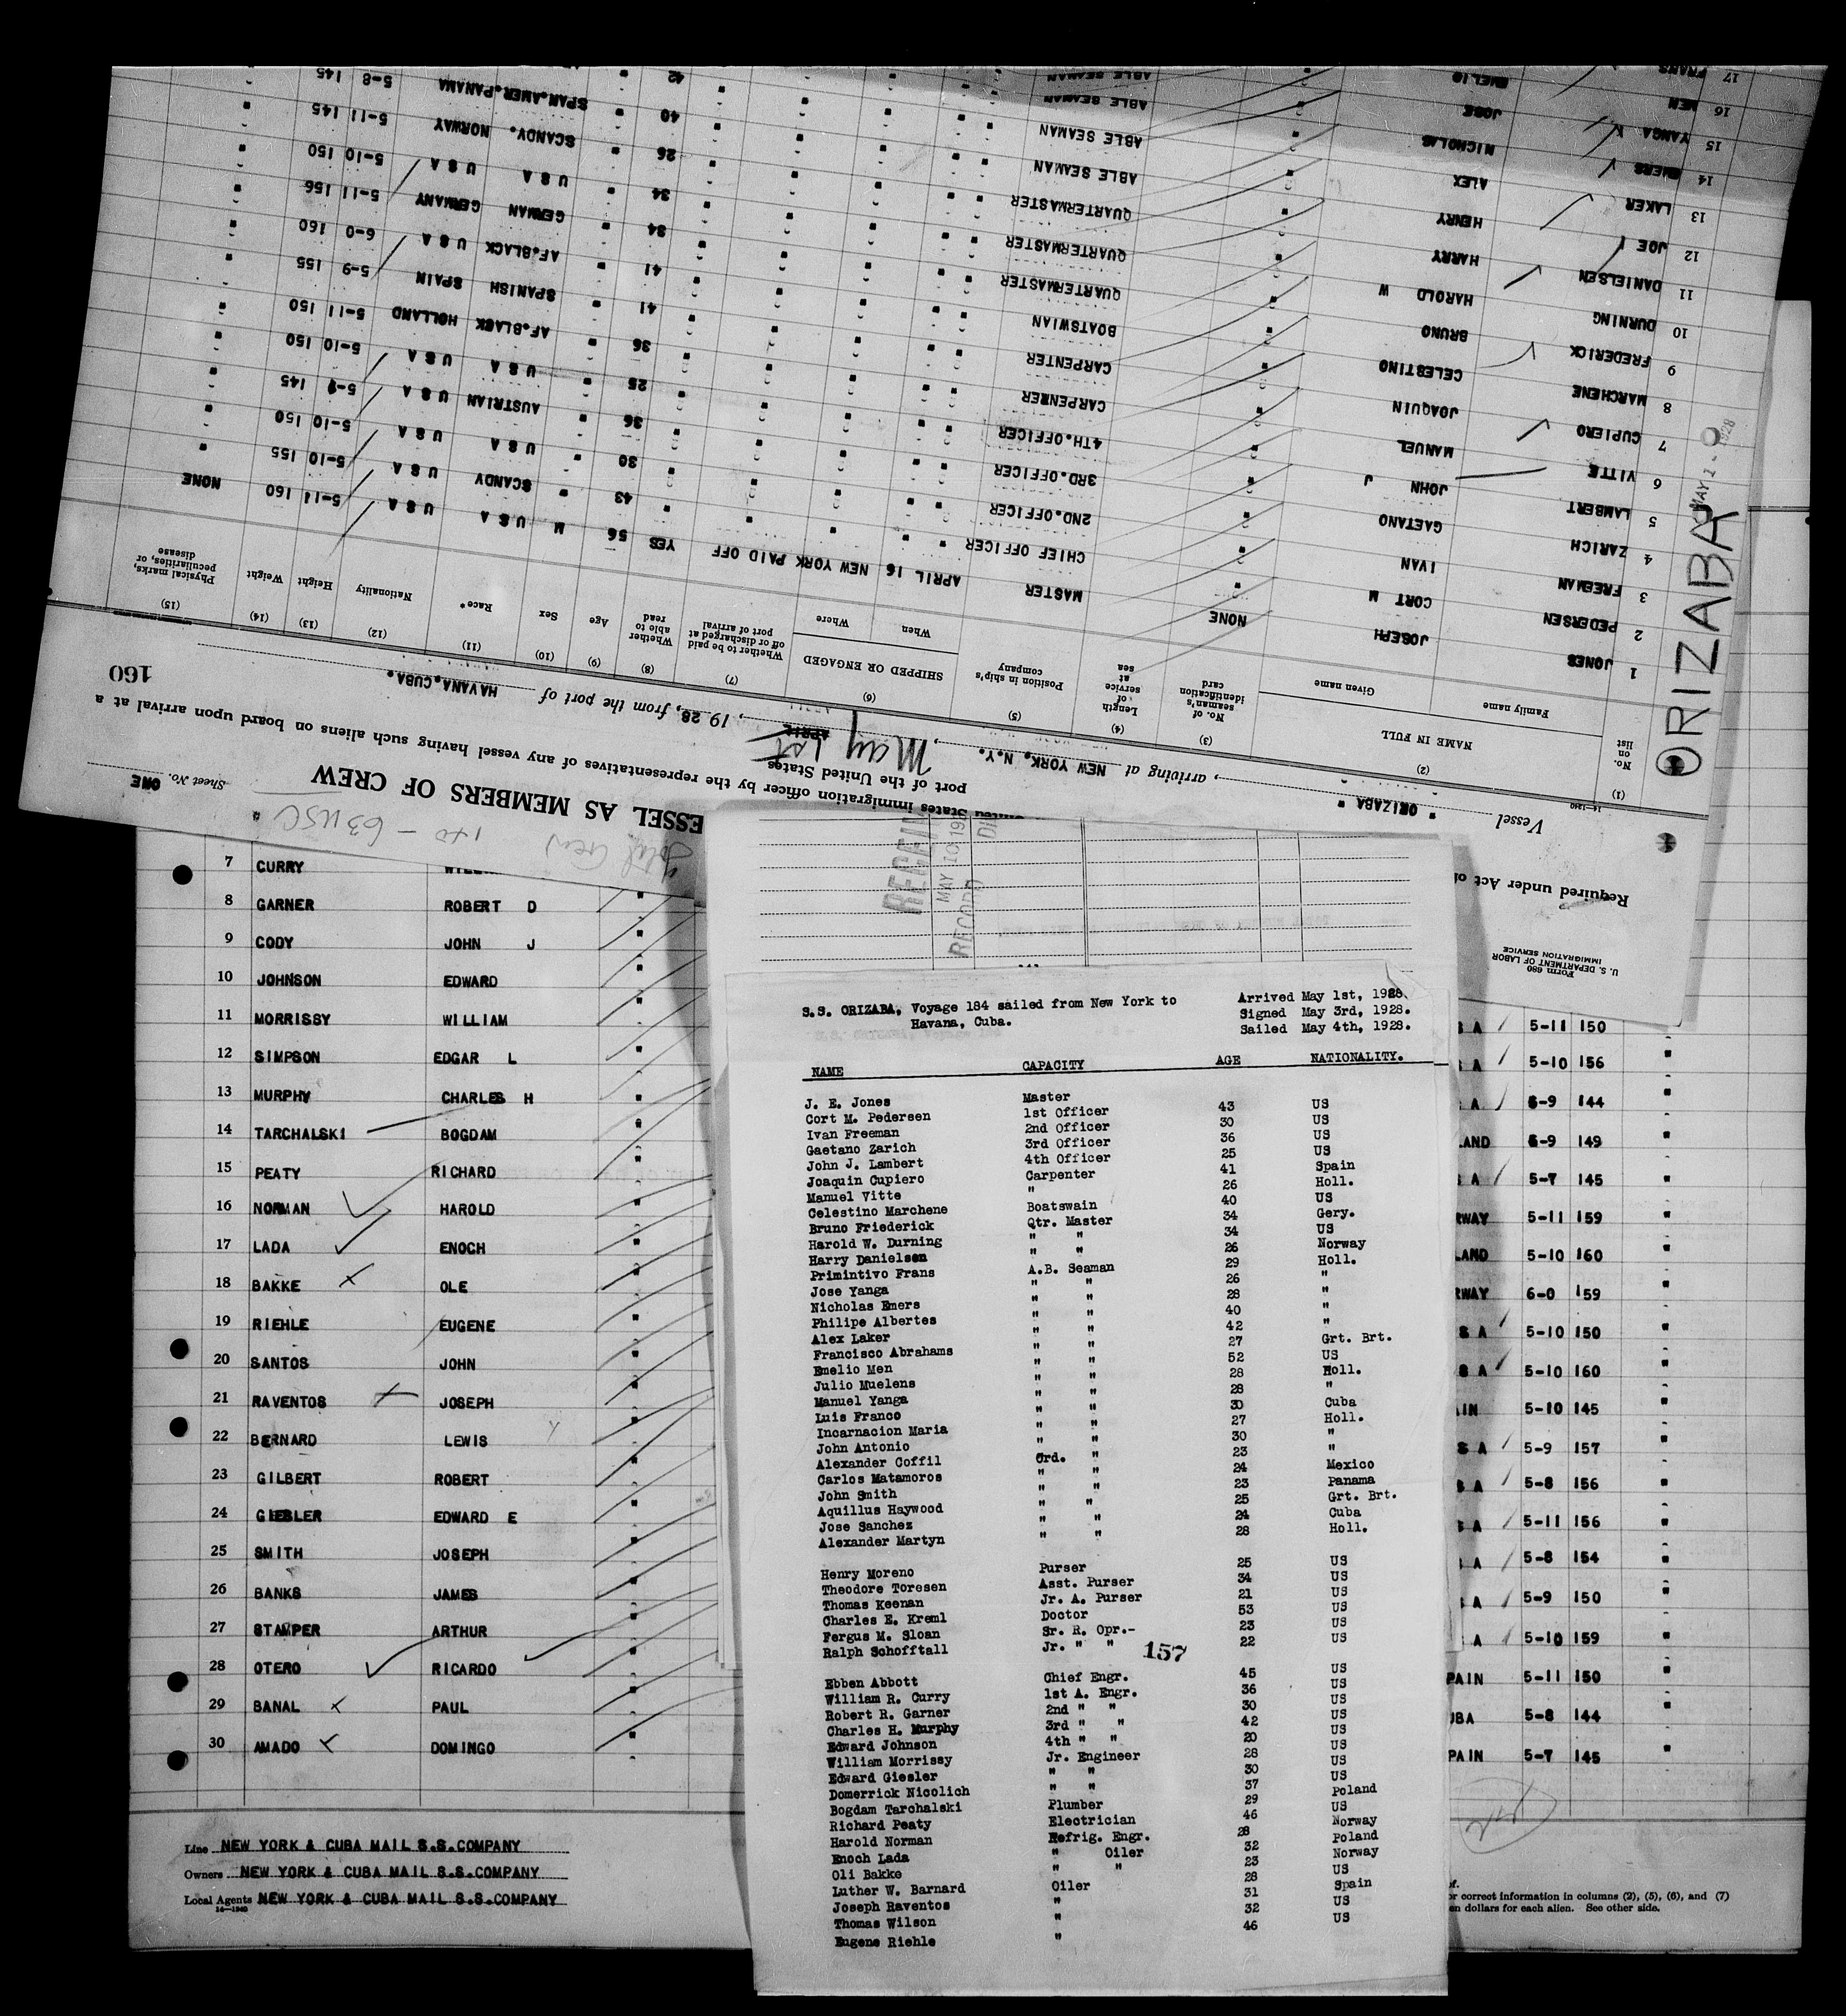 Form 680
U. S. DEPARTMENT OF LABOR
IMMIGRATION SERVICE
Required under Act of
ESSEL AS MEMBERS OF CREW
Sheet No. ONE
States immigration officer by the representatives of any vessel having such aliens on board upon arrival at a
port of the United States
160
Vessel " ORIZABA " , arriving at NEW YORK, N.Y. , May 1st APRIL , 1928, from the port of HAVANA.CUBA.
14-1240
ORIZABA
MAY 1 - 1928
(1) (2) (3) (4) (5) (6) (7) (8) (9) (10) (11) (12) (13) (14) (15)
No. on list NAME IN FULL No. of seaman's identification card Length of service at sea Position in ship's company SHIPPED OR ENGAGED Whether to be paid off or discharged at port of arrival Whether able to read Age Sex Race* Nationality Height Weight Physical marks, peculiarities, or disease
Family name Given name When Where
1 JONES JOSEPH NONE MASTER APRIL 16 NEW YORK PAID OFF YES 56 M U S A U S A 5-11 160 NONE
2 PEDERSEN CORT M " CHIEF OFFICER " " " " " 43 " SCANDY U S A 5-10 155 "
3 FREEMAN IVAN " 2ND.OFFICER " " " " " 30 " U S A U S A 5-10 150 "
4 ZARICH GAETANO " 3RD.OFFICER " " " " " 36 " AUSTRIAN U S A 5-9 145 "
5 LAMBERT JOHN J " 4TH.OFFICER " " " " " 25 " U S A U S A 5-10 150 "
6 VITTE MANUEL " CARPENTER " " " " " 36 " AF.BLACK HOLLAND 5-11 150 "
7 CUPIERO JOAQUIN " CARPENTER " " " " " 41 " SPANISH SPAIN 5-9 155 "
8 MARCHENE CELESTINO " BOATSWIAN " " " " " 41 " AF.BLACK U S A 6-0 160 "
9 FREDERICK BRUNO " QUARTERMASTER " " " " " 34 " GERMAN GERMANY 5-11 156 "
10 DURNING HAROLD W " QUARTERMASTER " " " " " 34 " U S A U S A 5-10 150 "
11 DANIELSEN HARRY " QUARTERMASTER " " " " " 26 " SCANDY. NORWAY 5-11 145 "
12 JOE HENRY " ABLE SEAMAN " " " " " 40 " SPAN.AMER.PANAMA 5-8 145 "
13 LAKER ALEX " ABLE SEAMAN " " " " " 42 "
14 EMERS NICHOLAS " ABLE SEAMAN
15 YANGA JOSE " ABLE SEAMAN
16 MEN EMELIO
17 FRANS
7 CURRY
8 GARNER ROBERT D "
9 CODY JOHN J "
10 JOHNSON EDWARD "
11 MORRISSY WILLIAM "
12 SIMPSON EDGAR L "
13 MURPHY CHARLES H "
14 TARCHALSKI BOGDAM "
15 PEATY RICHARD "
16 NORMAN HAROLD "
17 LADA ENOCH "
18 BAKKE OLE "
19 RIEHLE EUGENE "
20 SANTOS JOHN "
21 RAVENTOS JOSEPH "
22 BERNARD LEWIS "
23 GILBERT ROBERT "
24 GIESLER EDWARD E "
25 SMITH JOSEPH "
26 BANKS JAMES "
27 STAMPER ARTHUR "
28 OTERO RICARDO "
29 BANAL PAUL "
30 AMADO DOMINGO "
Line NEW YORK & CUBA MAIL S.S.COMPANY
Owners NEW YORK & CUBA MAIL S.S.COMPANY
Local Agents NEW YORK & CUBA MAIL S.S.COMPANY
14-1240
MAY 10 192
RECORD
S.S. ORIZABA, Voyage 184 sailed from New York to
Havana, Cuba.
Arrived May 1st, 1928.
Signed May 3rd, 1928.
Sailed May 4th, 1928.
NAME CAPACITY AGE NATIONALITY.
J. E. Jones Master
Cort M. Pedersen 1st Officer 43 US
Ivan Freeman 2nd Officer 30 US
Gaetano Zarich 3rd Officer 36 US
John J. Lambert 4th Officer 25 US
Joaquin Cupiero Carpenter 41 Spain
Manuel Vitte " 26 Holl.
Celestino Marchene Boatswain 40 US
Bruno Friederick Qtr. Master 34 Gery.
Harold W. Durning " " 34 US
Harry Danielsen " " 26 Norway
Primintivo Frans A.B. Seaman 29 Holl.
Jose Yanga " " 26 "
Nicholas Emers " " 28 "
Philipe Albertes " " 40 "
Alex Laker " " 42 "
Francisco Abrahams " " 27 Grt. Brt.
Emelio Men " " 52 US
Julio Muelens " " 28 Holl.
Manuel Yanga " " 28 "
Luis Franco " " 30 Cuba
Incarnacion Maria " " 27 Holl.
John Antonio " " 30 "
Alexander Coffil Ord. " 23 "
Carlos Matamoros " " 24 Mexico
John Smith " " 23 Panama
Aquillus Haywood " " 25 Grt. Brt.
Jose Sanchez " " 24 Cuba
Alexander Martyn " " 28 Holl.
Henry Moreno Purser 25 US
Theodore Toresen Asst. Purser 34 US
Thomas Keenan Jr. A. Purser 21 US
Charles E. Kreml Doctor 53 US
Fergus M. Sloan Sr. R. Opr.- 23 US
Ralph Schofftall Jr. " " 22 US
157
Ebben Abbott Chief Engr. 45 US
William R. Curry 1st A. Engr. 36 US
Robert R. Garner 2nd " " 30 US
Charles H. Murphy 3rd " " 42 US
Edward Johnson 4th " " 20 US
William Morrissy Jr. Engineer 28 US
Edward Giesler " " 30 US
Domerrick Nicolich " " 37 US
Bogdam Tarchalski Plumber 29 Poland
Richard Peaty Electrician 46 US
Harold Norman Refrig. Engr. 28 Norway
Enoch Lada " Oiler 32 Poland
Oli Bakke " " 23 Norway
Luther W. Barnard Oiler 28 US
Joseph Raventos " 31 Spain
Thomas Wilson " 32 US
Eugene Riehle " 46 US
A 5-11 150 "
A 5-10 156 "
A 6-9 144 "
LAND 6-9 149 "
A 5-7 145 "
RWAY 5-11 159 "
LAND 5-10 160 "
RWAY 6-0 159 "
S A 5-10 150 "
S A 5-10 160 "
AIN 5-10 145 "
S A 5-9 157 "
S A 5-8 156 "
S A 5-11 156 "
A 5-8 154 "
A 5-9 150 "
A 5-10 159 "
PAIN 5-11 150 "
UBA 5-8 144 "
PAIN 5-7 145 "
or correct information in columns (2), (5), (6), and (7)
en dollars for each alien. See other side.